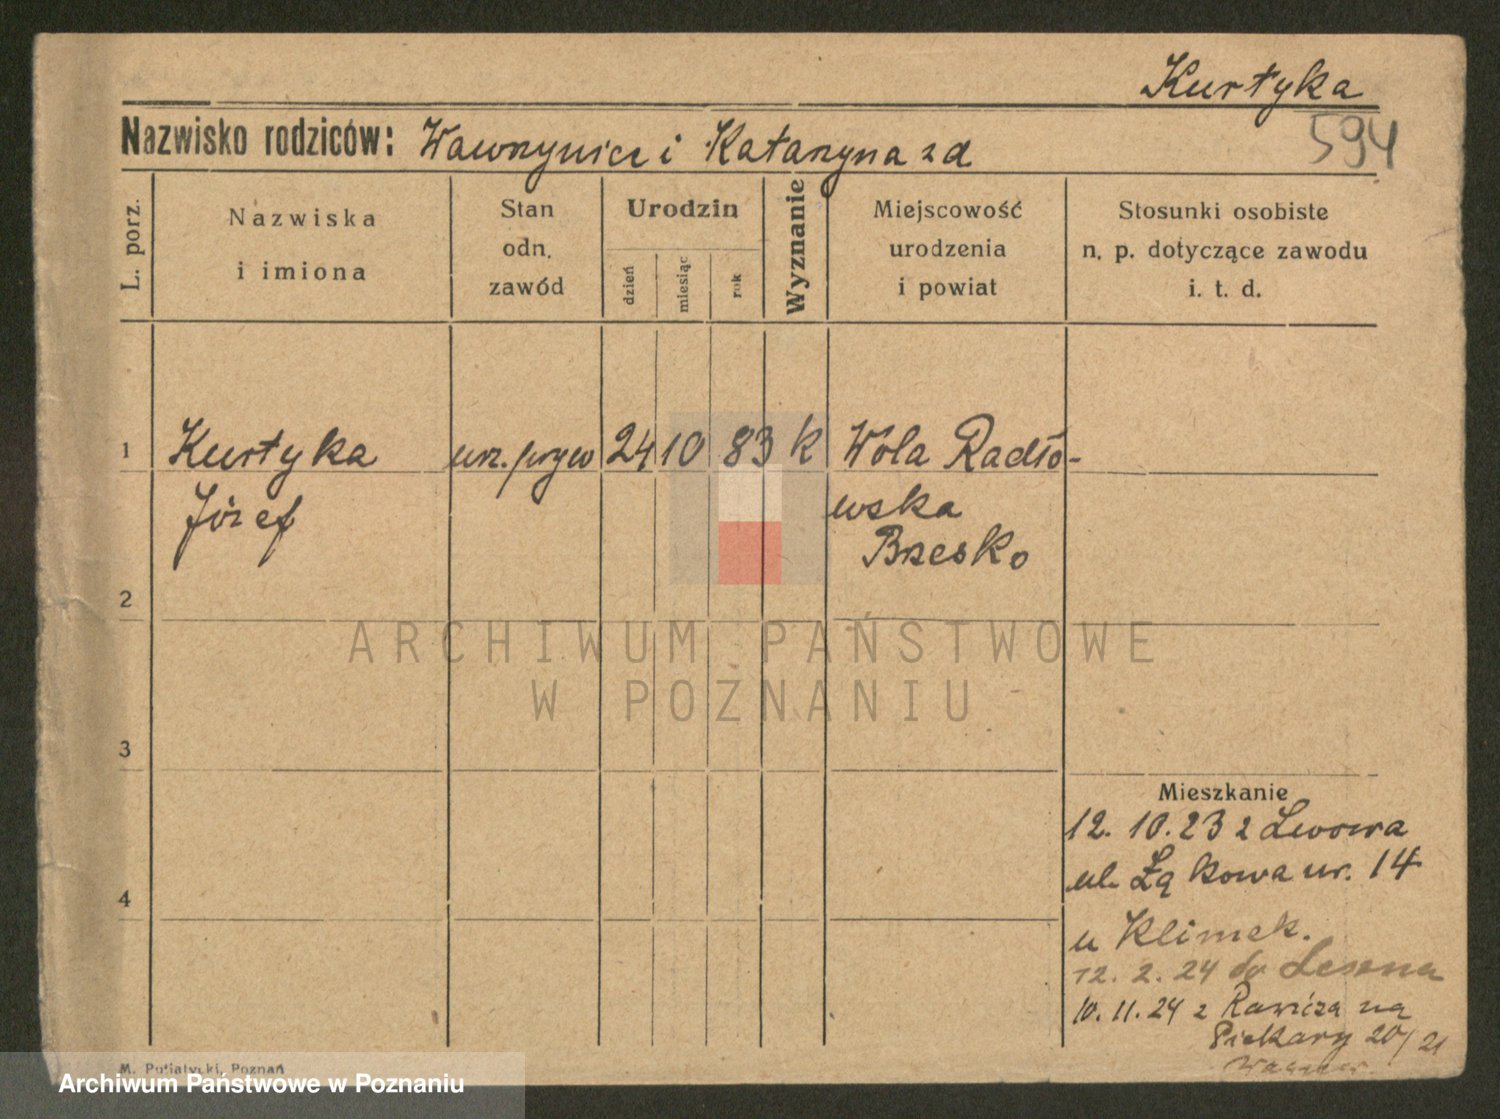 Kurtyka
594
Nazwisko rodziców: Wawrzyniec i Katarzyna zd
L. porz.
Nazwiska
i imiona
Stan
odn.
zawód
Urodzin
dzień
miesiąc
rok
Wyznanie
Miejscowość
urodzenia
i powiat
Stosunki osobiste
n. p. dotyczące zawodu
i. t. d.
1 Kurtyka urz. pryw 24 10 83 k Wola Radło-
Józef wska
Brzesko
2
ARCHIWUM PAŃSTWOWE
W POZNANIU
3
Mieszkanie
12. 10. 23 z Lwowa
ul. Łąkowa nr. 14
4
u Klimek.
12. 2. 24 do Leszna
10. 11. 24 z Rawicza na
Piekary 20/21
Wagner.
M. Putiatycki, Poznań
Archiwum Państwowe w Poznaniu